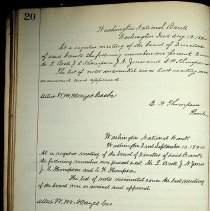 20
Washington National Bank
Washington Ind Aug 13, 1890
At a regular meeting of the board of Directors
of said bank the following members are present
M. L. Bod J. E. Thompson J. H. Jones and E. H. Thompson
The list of notes discounted since last meeting was
examined and approved
attest
E. H. Thompson
Washington National Bank
Washington Ind September 10 1890
At a regular meeting of the board of Directors of said Bank
the following members were present M. L. J. H. Jones
J. E. Thompson and E. H. Thompson
The list of notes discounted since the last meeting
of the board was examined and approved
attest